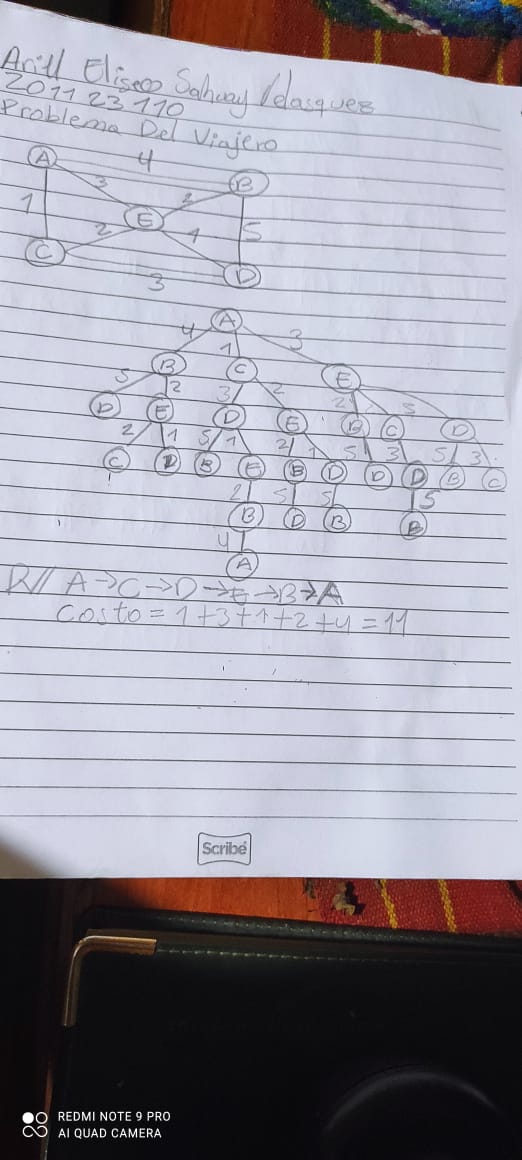 Arill Eliseo Sahuay Velasquez
201123110
Problema Del Viajero
A 4 B
3 2
1 E 5
2 1
C 3 D
A
4 1 3
B C E
5 2 3 2 2 3
D E D E B C D
2 1 5 1 2 1 5 3 5 3
C D B E B D D D B C
2 5 5 5
B D B B
4
A
R// A→C→D→E→B→A
Costo = 1+3+1+2+4=11
Scribe
REDMI NOTE 9 PRO
AI QUAD CAMERA